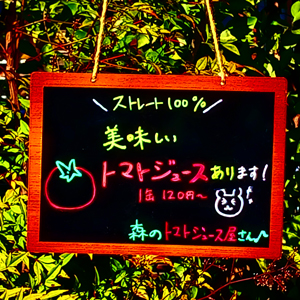 ＼ストレート100％／
美味しい
トマトジュースあります!
1缶 120円～
森のトマトジュース屋さん♪